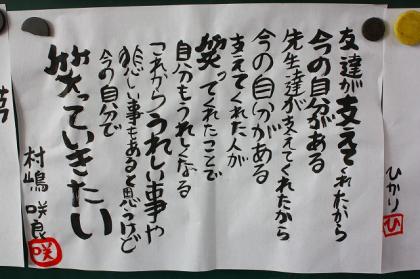 友達が支えてくれたから
今の自分がある
先生達が支えてくれたから
今の自分がある
支えてくれた人が
笑ってくれたことで
自分もうれしくなる
これからうれしい事や
悲しい事もあると思うけど
今の自分で
笑っていきたい
村嶋咲良
咲
ひかり
ひ